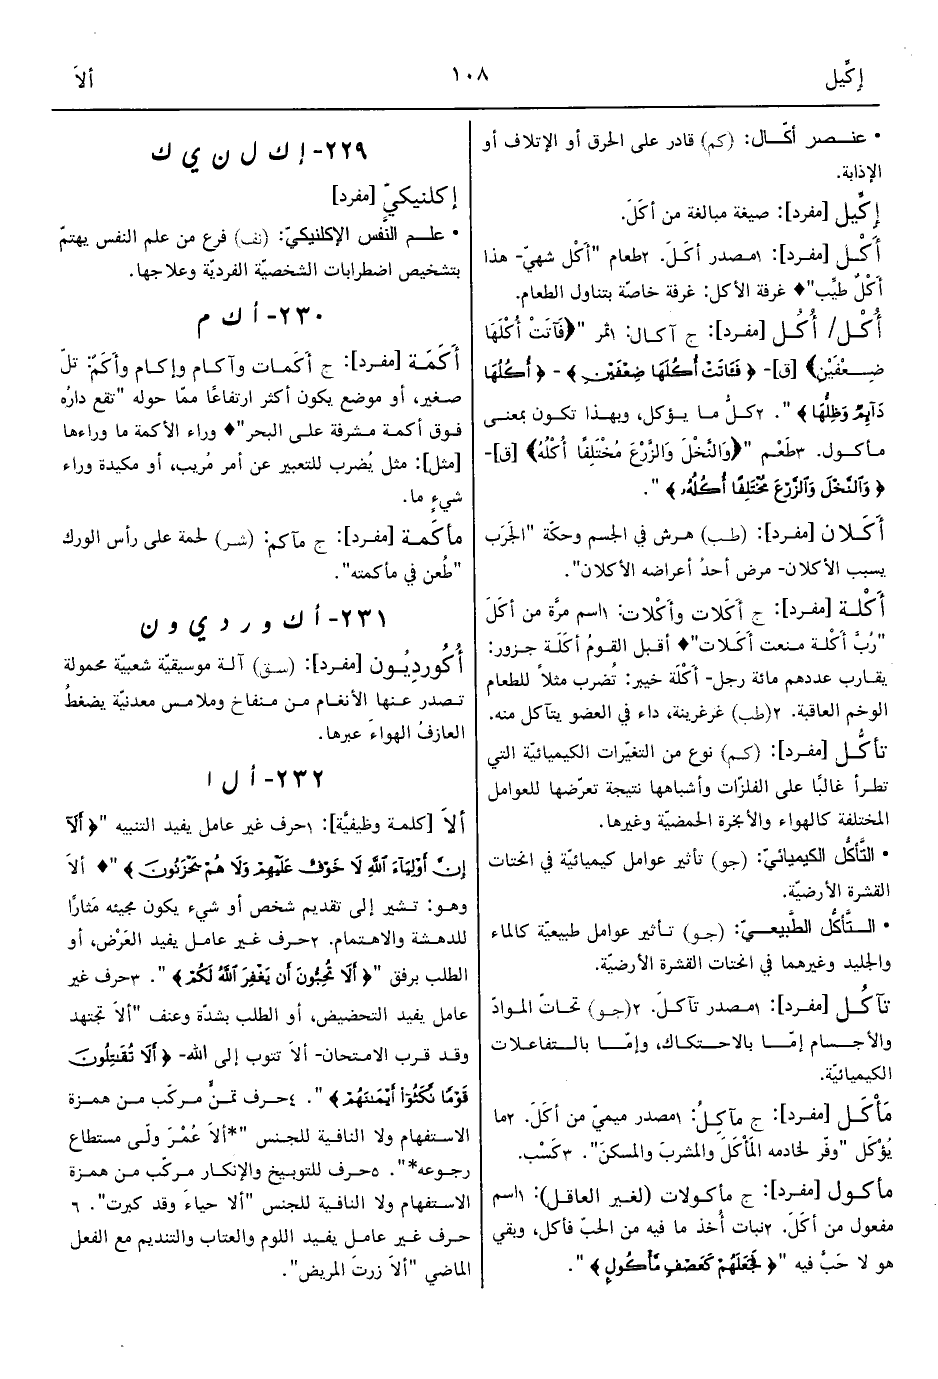 إكِّيل
١٠٨
ألاَ
• عنصر أكّال: (كم) قادر على الحرق أو الإتلاف أو
الإذابة.
إِكِّيل [مفرد]: صيغة مبالغة من أكَلَ.
أَكْل [مفرد]: ١مصدر أكَلَ. ٢طعام "أَكْل شهيّ- هذا
أَكْلٌ طيِّب"♦ غرفة الأكل: غرفة خاصّة بتناول الطعام.
أُكْل/ أُكُل [مفرد]: ج آكال: ١ثمر "﴿فَآتَتْ أُكْلَهَا
ضِعْفَيْنِ﴾ [ق]- ﴿فَـَٔاتَتْ أُكُلَهَا ضِعْفَيْنِ﴾ - ﴿أُكُلُهَا
دَآئِمٌ وَظِلُّهَا﴾". ٢كلُّ ما يؤكل، وبهذا تكون بمعنى
مأكول. ٣طَعْم "﴿وَالنَّخْلَ وَالزَّرْعَ مُخْتَلِفًا أُكْلُهُ﴾ [ق]-
﴿وَٱلنَّخْلَ وَٱلزَّرْعَ مُخْتَلِفًا أُكُلُهُۥ﴾".
أَكَلان [مفرد]: (طب) هرش في الجسم وحكّة "الجَرَب
يسبب الأكلان- مرض أحدُ أعراضه الأكلان".
أَكْلة [مفرد]: ج أكَلات وأكْلات: ١اسم مرَّة من أكَلَ
"رُبَّ أَكْلة منعت أكَلات"♦ أقبل القومُ أكَلَة جزور:
يقارب عددهم مائة رجل- أكْلَة خيبر: تُضرب مثلاً للطعام
الوخم العاقبة. ٢(طب) غرغرينة، داء في العضو يتآكل منه.
تأكُّل [مفرد]: (كم) نوع من التغيّرات الكيميائيّة التي
تطرأ غالبًا على الفلزّات وأشباهها نتيجة تعرّضها للعوامل
المختلفة كالهواء والأبخرة الحمضيّة وغيرها.
• التَّأكُّل الكيميائيّ: (جو) تأثير عوامل كيميائيّة في انحتات
القشرة الأرضيّة.
• التَّأكُّل الطَّبيعيّ: (جو) تأثير عوامل طبيعيّة كالماء
والجليد وغيرهما في انحتات القشرة الأرضيّة.
تآكُل [مفرد]: ١مصدر تآكلَ. ٢(جو) تحاتّ الموادّ
والأجسام إمّا بالاحتكاك، وإمّا بالتفاعلات
الكيميائيّة.
مَأْكَل [مفرد]: ج مآكِلُ: ١مصدر ميميّ من أكَلَ. ٢ما
يُؤْكَل "وفّر لخادمه المَأْكَلَ والمشربَ والمسكنَ". ٣كَسْب.
مأكول [مفرد]: ج مأكولات (لغير العاقل): ١اسم
مفعول من أكَلَ. ٢نبات أُخذ ما فيه من الحبّ فأكل، وبقي
هو لا حَبَّ فيه "﴿فَجَعَلَهُمْ كَعَصْفٍ مَّأْكُولٍۭ﴾".
٢٢٩- إ ك ل ن ي ك
إكلنيكيّ [مفرد]
• علم النَّفس الإكلنيكيّ: (نف) فرع من علم النفس يهتمّ
بتشخيص اضطرابات الشخصيّة الفرديّة وعلاجها.
٢٣٠- أ ك م
أَكَمَة [مفرد]: ج أكَمات وآكام وإكام وأكَمٌ: تلّ
صغير، أو موضع يكون أكثر ارتفاعًا ممّا حوله "تقع دارُه
فوق أكمة مشرفة على البحر"♦ وراء الأكمة ما وراءها
[مثل]: مثل يُضرب للتعبير عن أمر مُريب، أو مكيدة وراء
شيءٍ ما.
مأكَمة [مفرد]: ج مآكم: (شر) لحمة على رأس الورك
"طُعن في مأكمته".
٢٣١- أ ك و ر د ي و ن
أُكُورديُون [مفرد]: (سق) آلة موسيقيّة شعبيّة محمولة
تصدر عنها الأنغام من منفاخ وملامس معدنيّة يضغطُ
العازفُ الهواءَ عبرها.
٢٣٢- أ ل ا
ألاَ [كلمة وظيفيَّة]: ١حرف غير عامل يفيد التنبيه "﴿أَلَآ
إِنَّ أَوْلِيَآءَ ٱللَّهِ لَا خَوْفٌ عَلَيْهِمْ وَلَا هُمْ يَحْزَنُونَ﴾"♦ ألاَ
وهو: تشير إلى تقديم شخص أو شيء يكون مجيئه مَثارًا
للدهشة والاهتمام. ٢حرف غير عامل يفيد العَرْض، أو
الطلب برفق "﴿أَلَا تُحِبُّونَ أَن يَغْفِرَ ٱللَّهُ لَكُمْ﴾". ٣حرف غير
عامل يفيد التحضيض، أو الطلب بشدّة وعنف "ألاَ تجتهد
وقد قرب الامتحان- ألاَ تتوب إلى الله- ﴿أَلَا تُقَٰتِلُونَ
قَوْمًا نَّكَثُوٓا۟ أَيْمَٰنَهُمْ﴾". ٤حرف تمنٍّ مركّب من همزة
الاستفهام ولا النافية للجنس "*ألاَ عُمْرَ ولَى مستطاع
رجوعه*". ٥حرف للتوبيخ والإنكار مركّب من همزة
الاستفهام ولا النافية للجنس "ألا حياءَ وقد كبرت". ٦
حرف غير عامل يفيد اللوم والعتاب والتنديم مع الفعل
الماضي "ألاَ زرتَ المريض".